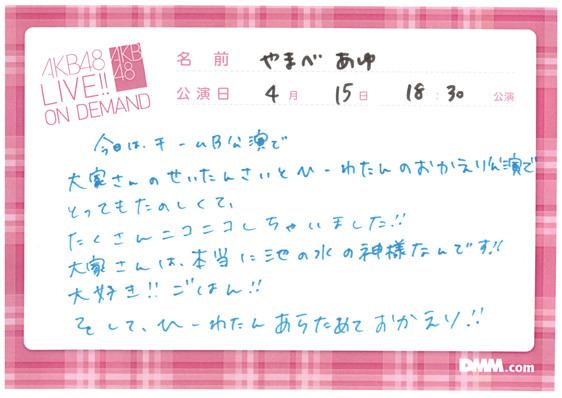 AKB48
LIVE!!
ON DEMAND
AKB
48
名前 やまべ あゆ
公演日 4月 15日 18:30 公演
今日は、チームB公演で
大家さんのせいたんさいとひーわたんのおかえり公演で
とってもたのしくて、
たくさんニコニコしちゃいました!!
大家さんは、本当に池の水の神様なんです!!
大好き!!ごはん!!
そして、ひーわたんあらためておかえり!!
DMM.com